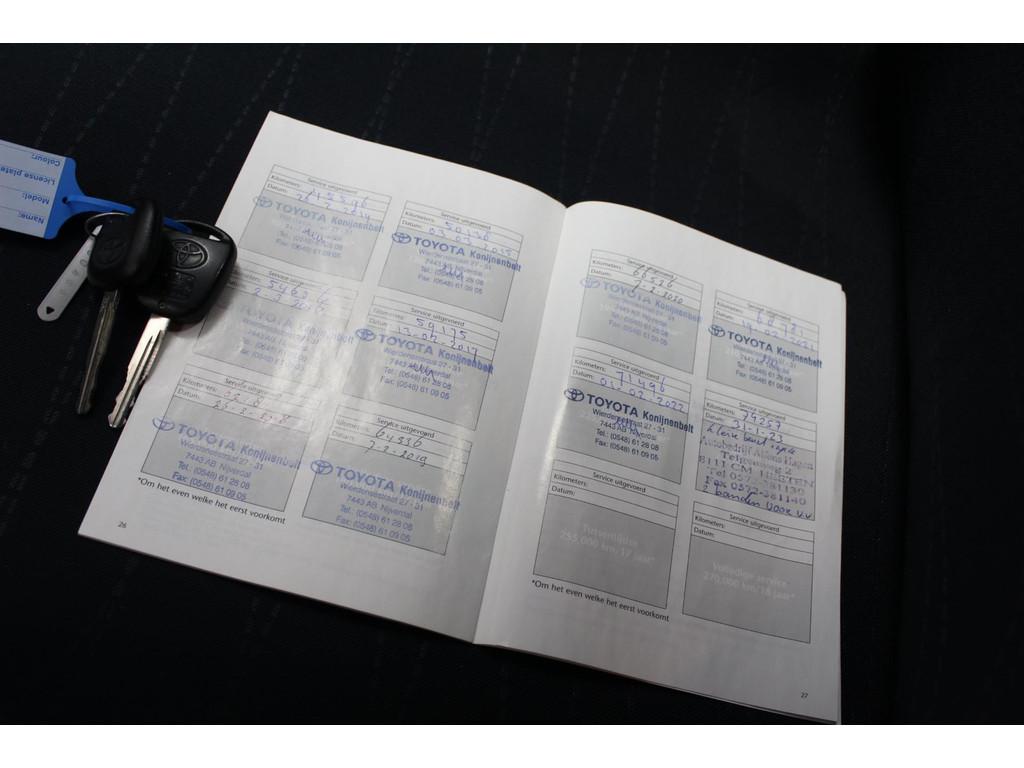 Name:
Model:
License plate
Colour:
Service uitgevoerd
Kilometers:
Datum:
TOYOTA Konijnenbelt
Fax: (0548) 61 09 05
Service uitgevoerd
Kilometers: 50136
Datum: 03-03-2015
TOYOTA Konijnenbelt
Wierdensestraat 27 - 31
7443 AB Nijverdal
Tel.: (0548) 61 28 08
Fax: (0548) 61 09 05
Service uitgevoerd
TOYOTA Konijnenbelt
Service uitgevoerd
Kilometers: 59175
Datum: 13-02-2017
TOYOTA Konijnenbelt
Wierdensestraat 27 - 31
7443 AB Nijverdal
Tel.: (0548) 61 28 08
Fax: (0548) 61 09 05
Service uitgevoerd
Kilometers:
Datum:
TOYOTA Konijnenbelt
Wierdensestraat 27 - 31
7443 AB Nijverdal
Tel.: (0548) 61 28 08
Fax: (0548) 61 09 05
Service uitgevoerd
Kilometers: 64336
Datum: 7-2-2019
TOYOTA Konijnenbelt
Wierdensestraat 27 - 31
7443 AB Nijverdal
Tel.: (0548) 61 28 08
Fax: (0548) 61 09 05
*Om het even welke het eerst voorkomt
26
Service uitgevoerd
Kilometers:
Datum: 7-2-2020
TOYOTA Konijnenbelt
Wierdensestraat 27 - 31
7443 AB Nijverdal
Tel.: (0548) 61 28 08
Fax: (0548) 61 09 05
Service uitgevoerd
Kilometers:
Datum: 19-02-2021
TOYOTA Konijnenbelt
Wierdensestraat 27 - 31
7443 AB Nijverdal
Tel.: (0548) 61 28 08
Fax: (0548) 61 09 05
Service uitgevoerd
Kilometers: 71496
Datum: 01-02-2022
TOYOTA Konijnenbelt
Wierdensestraat 27 - 31
7443 AB Nijverdal
Tel.: (0548) 61 28 08
Fax: (0548) 61 09 05
Service uitgevoerd
Kilometers: 79257
Datum: 31-1-23
kleine beurt
8111 CM HEETEN
Fax 0572-381140
2 banden voor v.v
Service uitgevoerd
Kilometers:
Datum:
Tussentijdse
255,000 km/17 jaar*
Service uitgevoerd
Kilometers:
Datum:
Volledige service
270,000 km/18 jaar*
*Om het even welke het eerst voorkomt
27